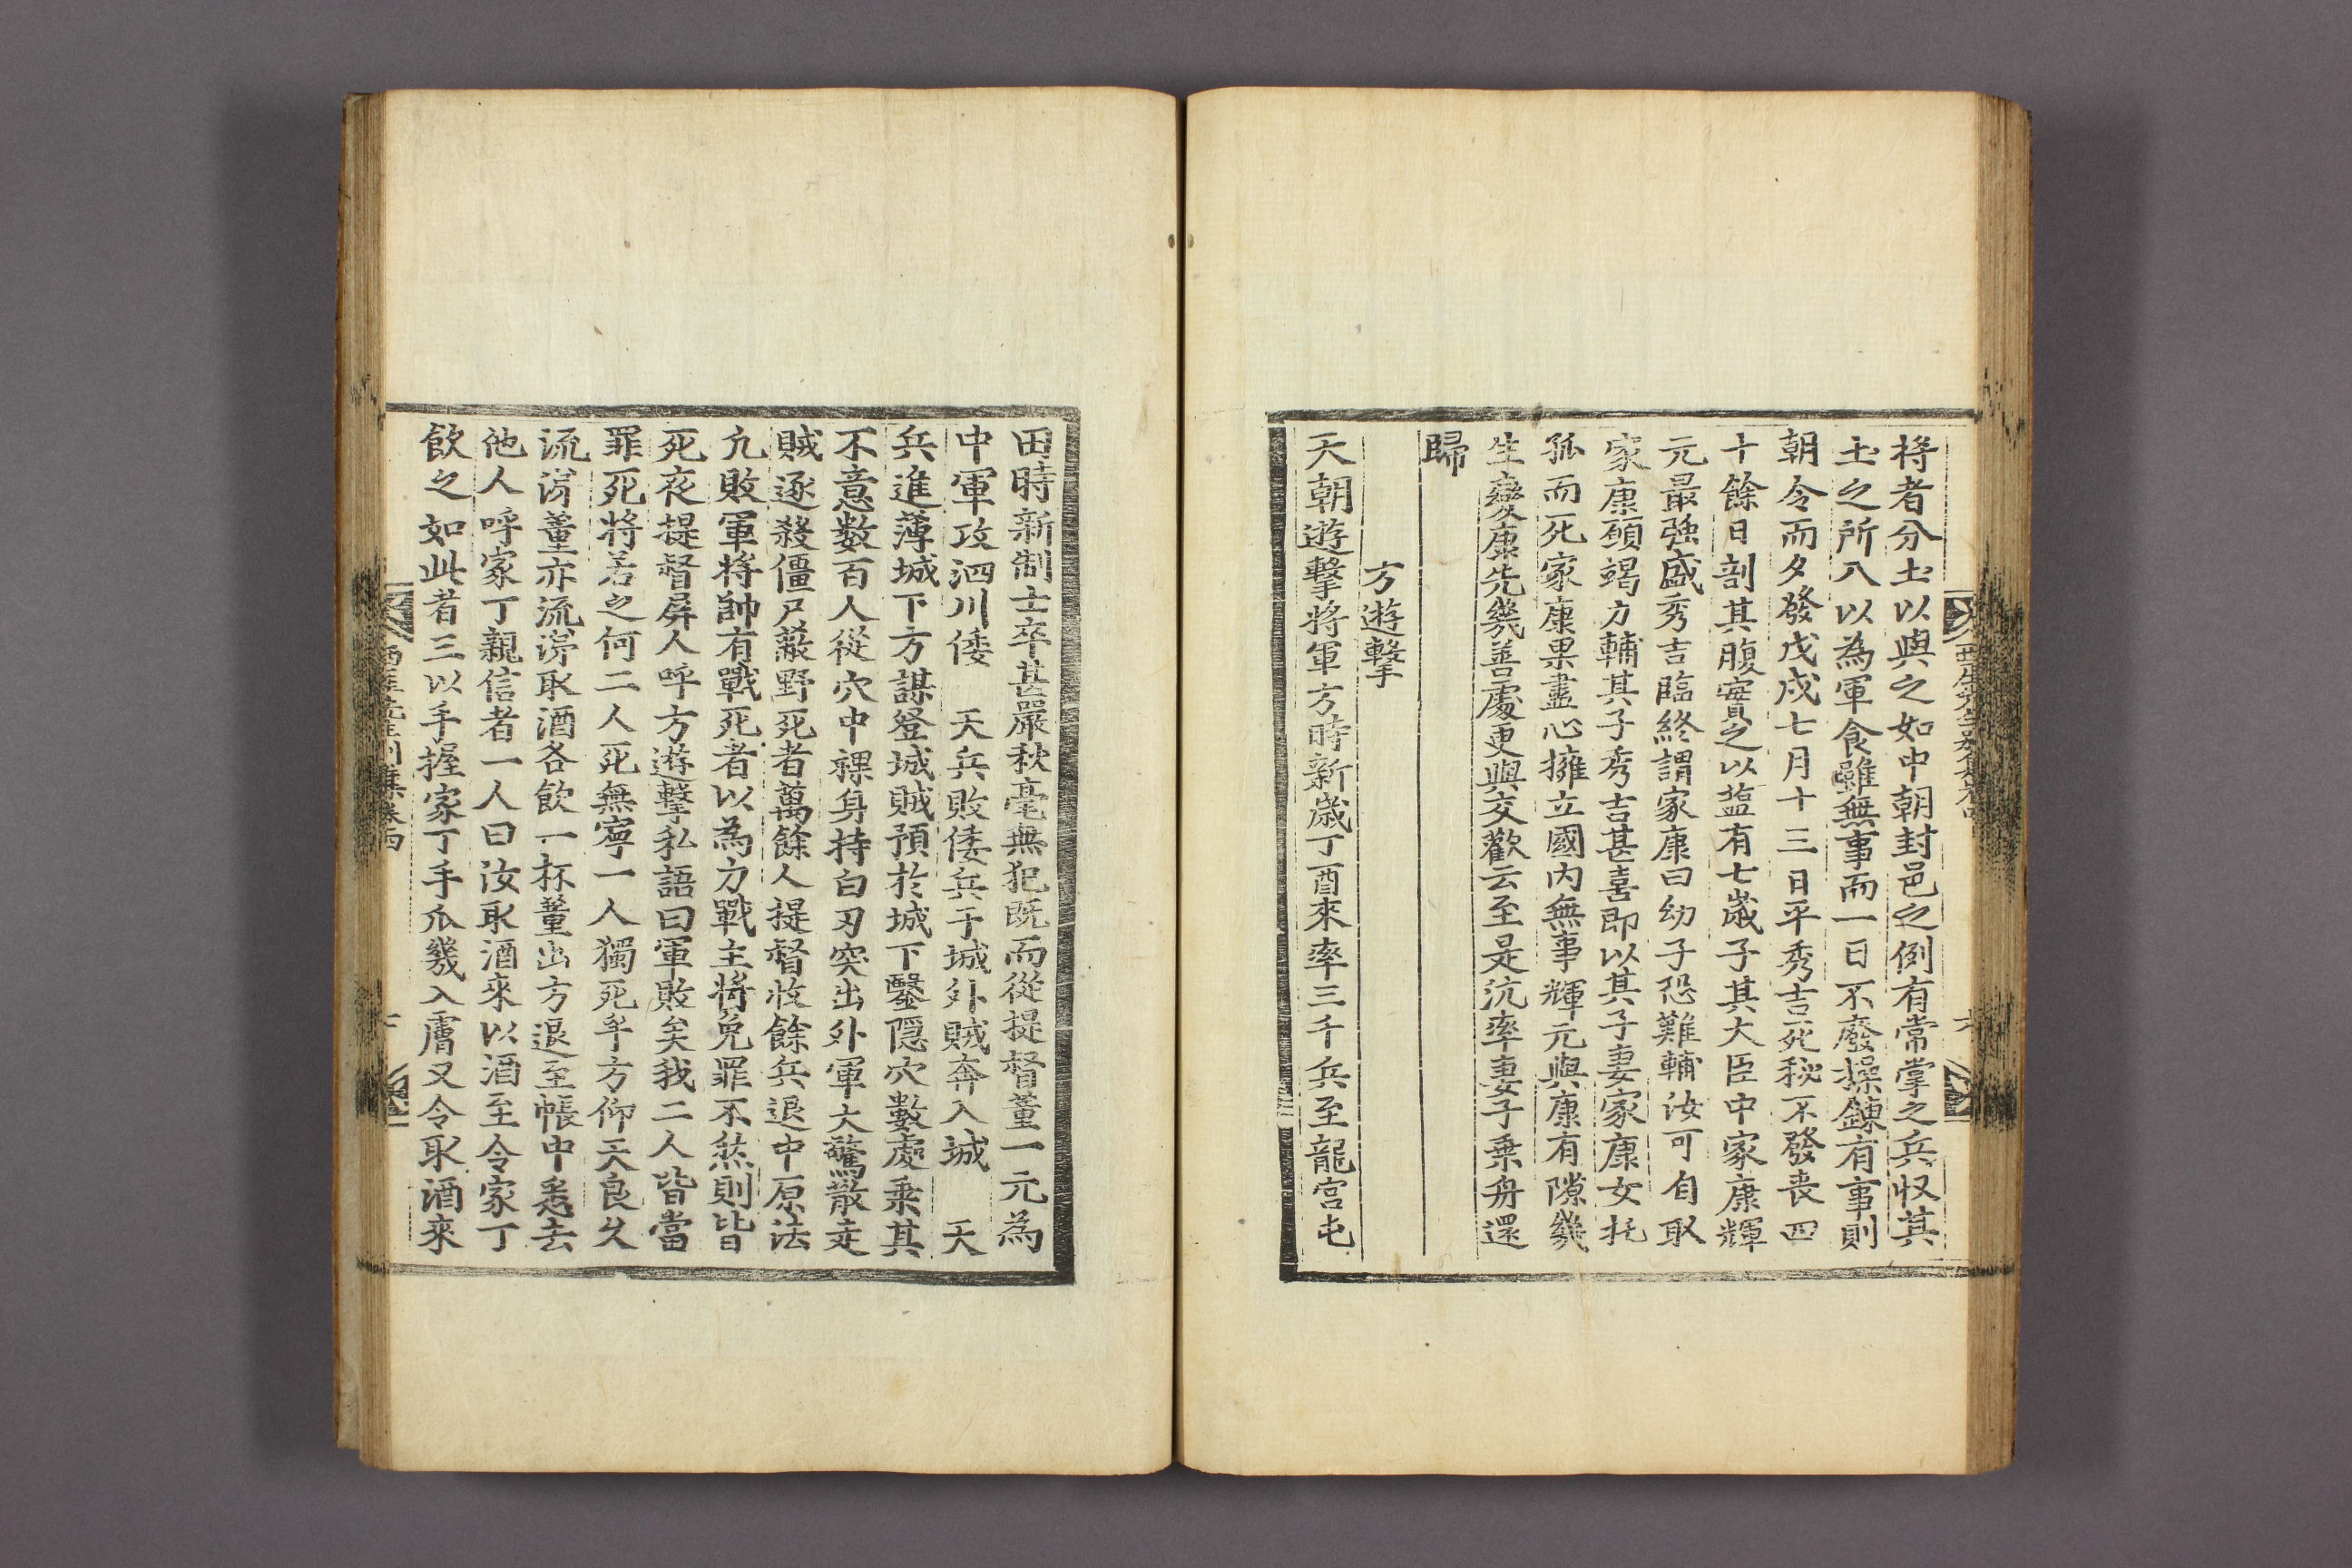 將者分土以與之如中朝封邑之例有常掌之兵収其
土之所入以為軍食雖無事而一日不廢操鍊有事則
朝令而夕發戊戌七月十三日平秀吉死秘不發喪四
十餘日剖其腹實之以塩有七歲子其大臣中家康輝
元最強盛秀吉臨終謂家康曰幼子恐難輔汝可自取
家康願竭力輔其子秀吉甚喜即以其子妻家康女托
孤而死家康果盡心擁立國內無事輝元與康有隙幾
生變康先幾善處更與交歡云至是沆率妻子乘舟還
歸
方遊擊
天朝遊擊將軍方時新歲丁酉來率三千兵至龍宮屯
田時新制士卒甚嚴秋毫無犯既而從提督董一元為
中軍攻泗川倭　天兵敗倭兵于城外賊奔入城　天
兵進薄城下方謀登城賊預於城下鑿隱穴數處乘其
不意数百人從穴中裸身持白刃突出外軍大驚散走
賊逐殺僵尸蔽野死者萬餘人提督收餘兵退中原法
九敗軍將帥有戰死者以為力戰主將免罪不然則皆
死夜提督屏人呼方遊擊私語曰軍敗矣我二人皆當
罪死將若之何二人死無寧一人獨死乎方仰天良久
流涕董亦流涕取酒各飲一杯董出方退至帳中悉去
他人呼家丁親信者一人曰汝取酒來以酒至令家丁
飲之如此者三以手握家丁手爪幾入膚又令取酒來